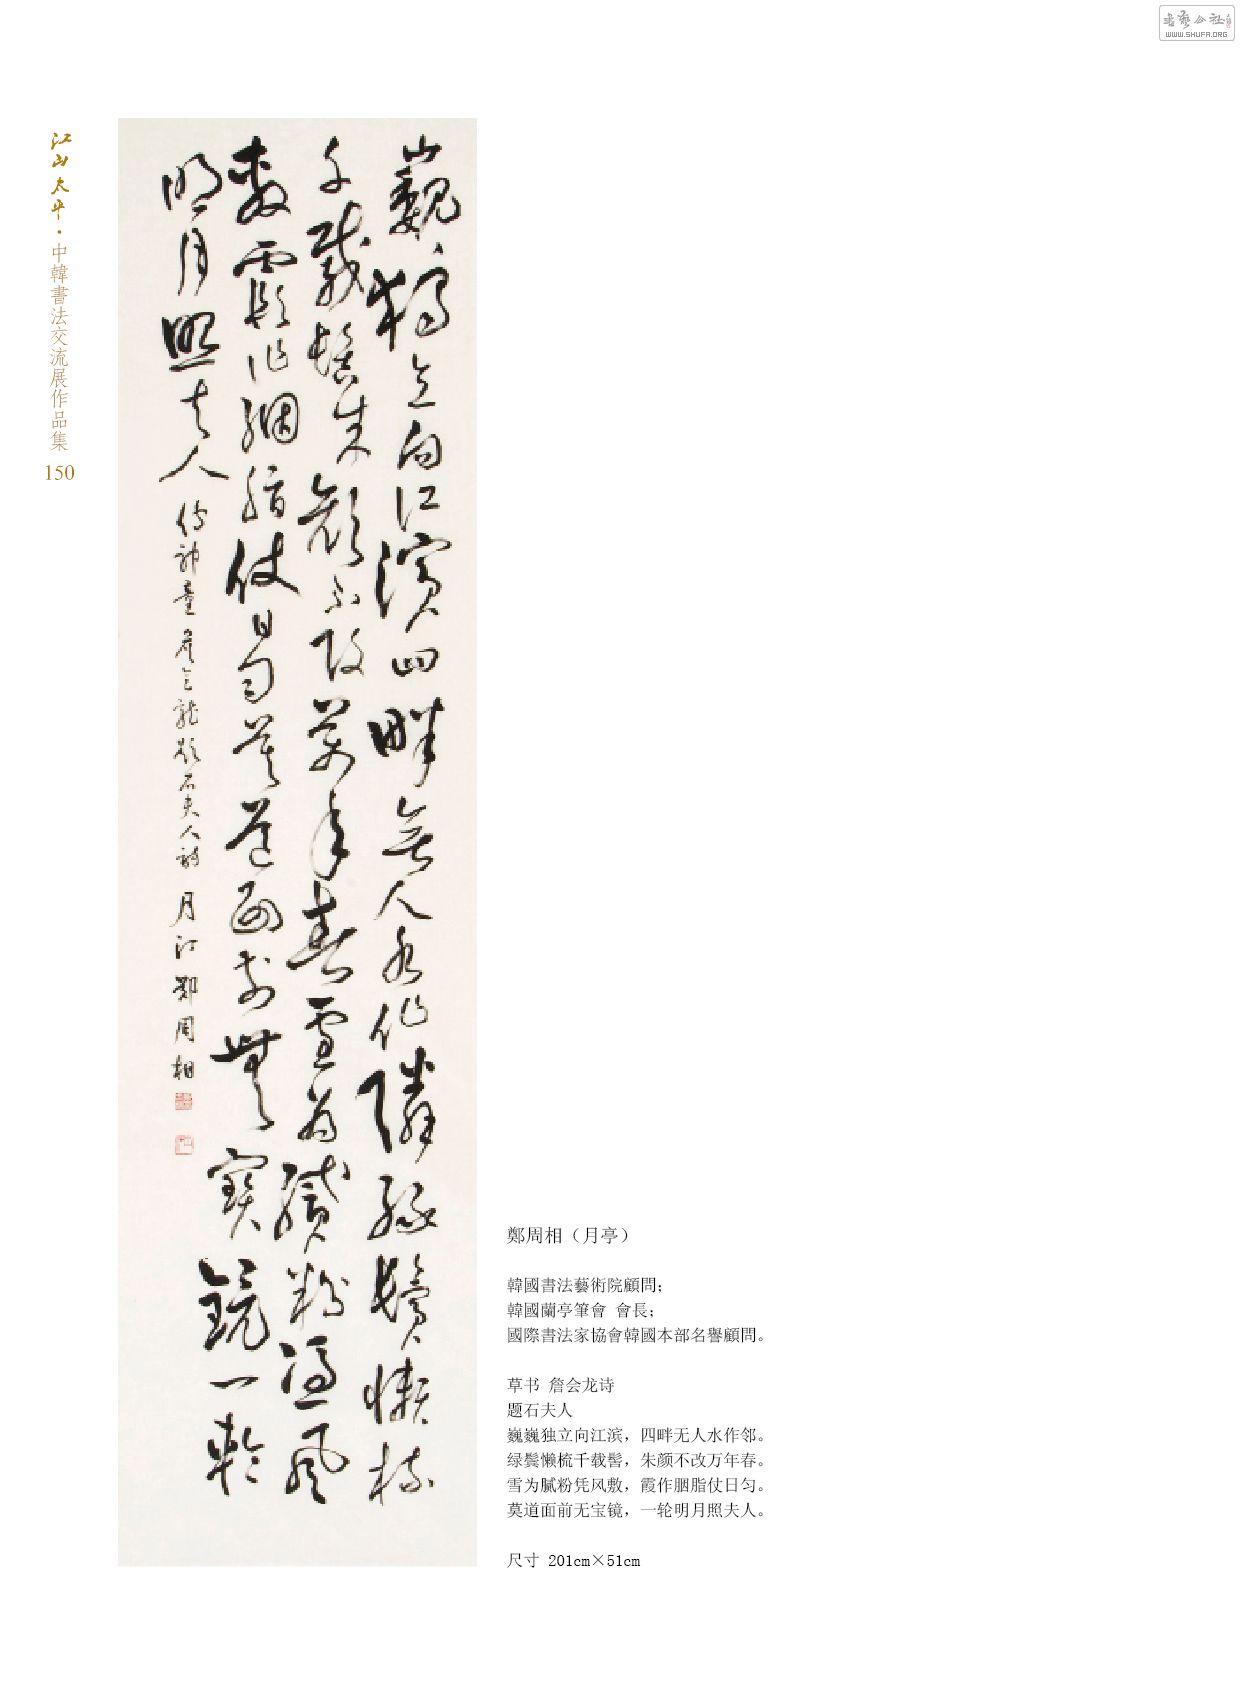 书艺公社
WWW.SHUFA.ORG
江山太平·中韓書法交流展作品集
150
巍独立向江濱四畔無人水作隣緑鬢懶梳
千載髻朱顔不改萬年春雪為膩粉憑風
敷霞作胭脂仗日匀莫道面前無寶鏡一輪
明月照夫人
傳神畫詹會龍題石夫人詩 月汀鄭周相
鄭周相（月亭）
韓國書法藝術院顧問；
韓國蘭亭筆會 會長；
國際書法家協會韓國本部名譽顧問。
草书 詹会龙诗
题石夫人
巍巍独立向江滨，四畔无人水作邻。
绿鬓懒梳千载髻，朱颜不改万年春。
雪为腻粉凭风敷，霞作胭脂仗日匀。
莫道面前无宝镜，一轮明月照夫人。
尺寸 201cm×51cm